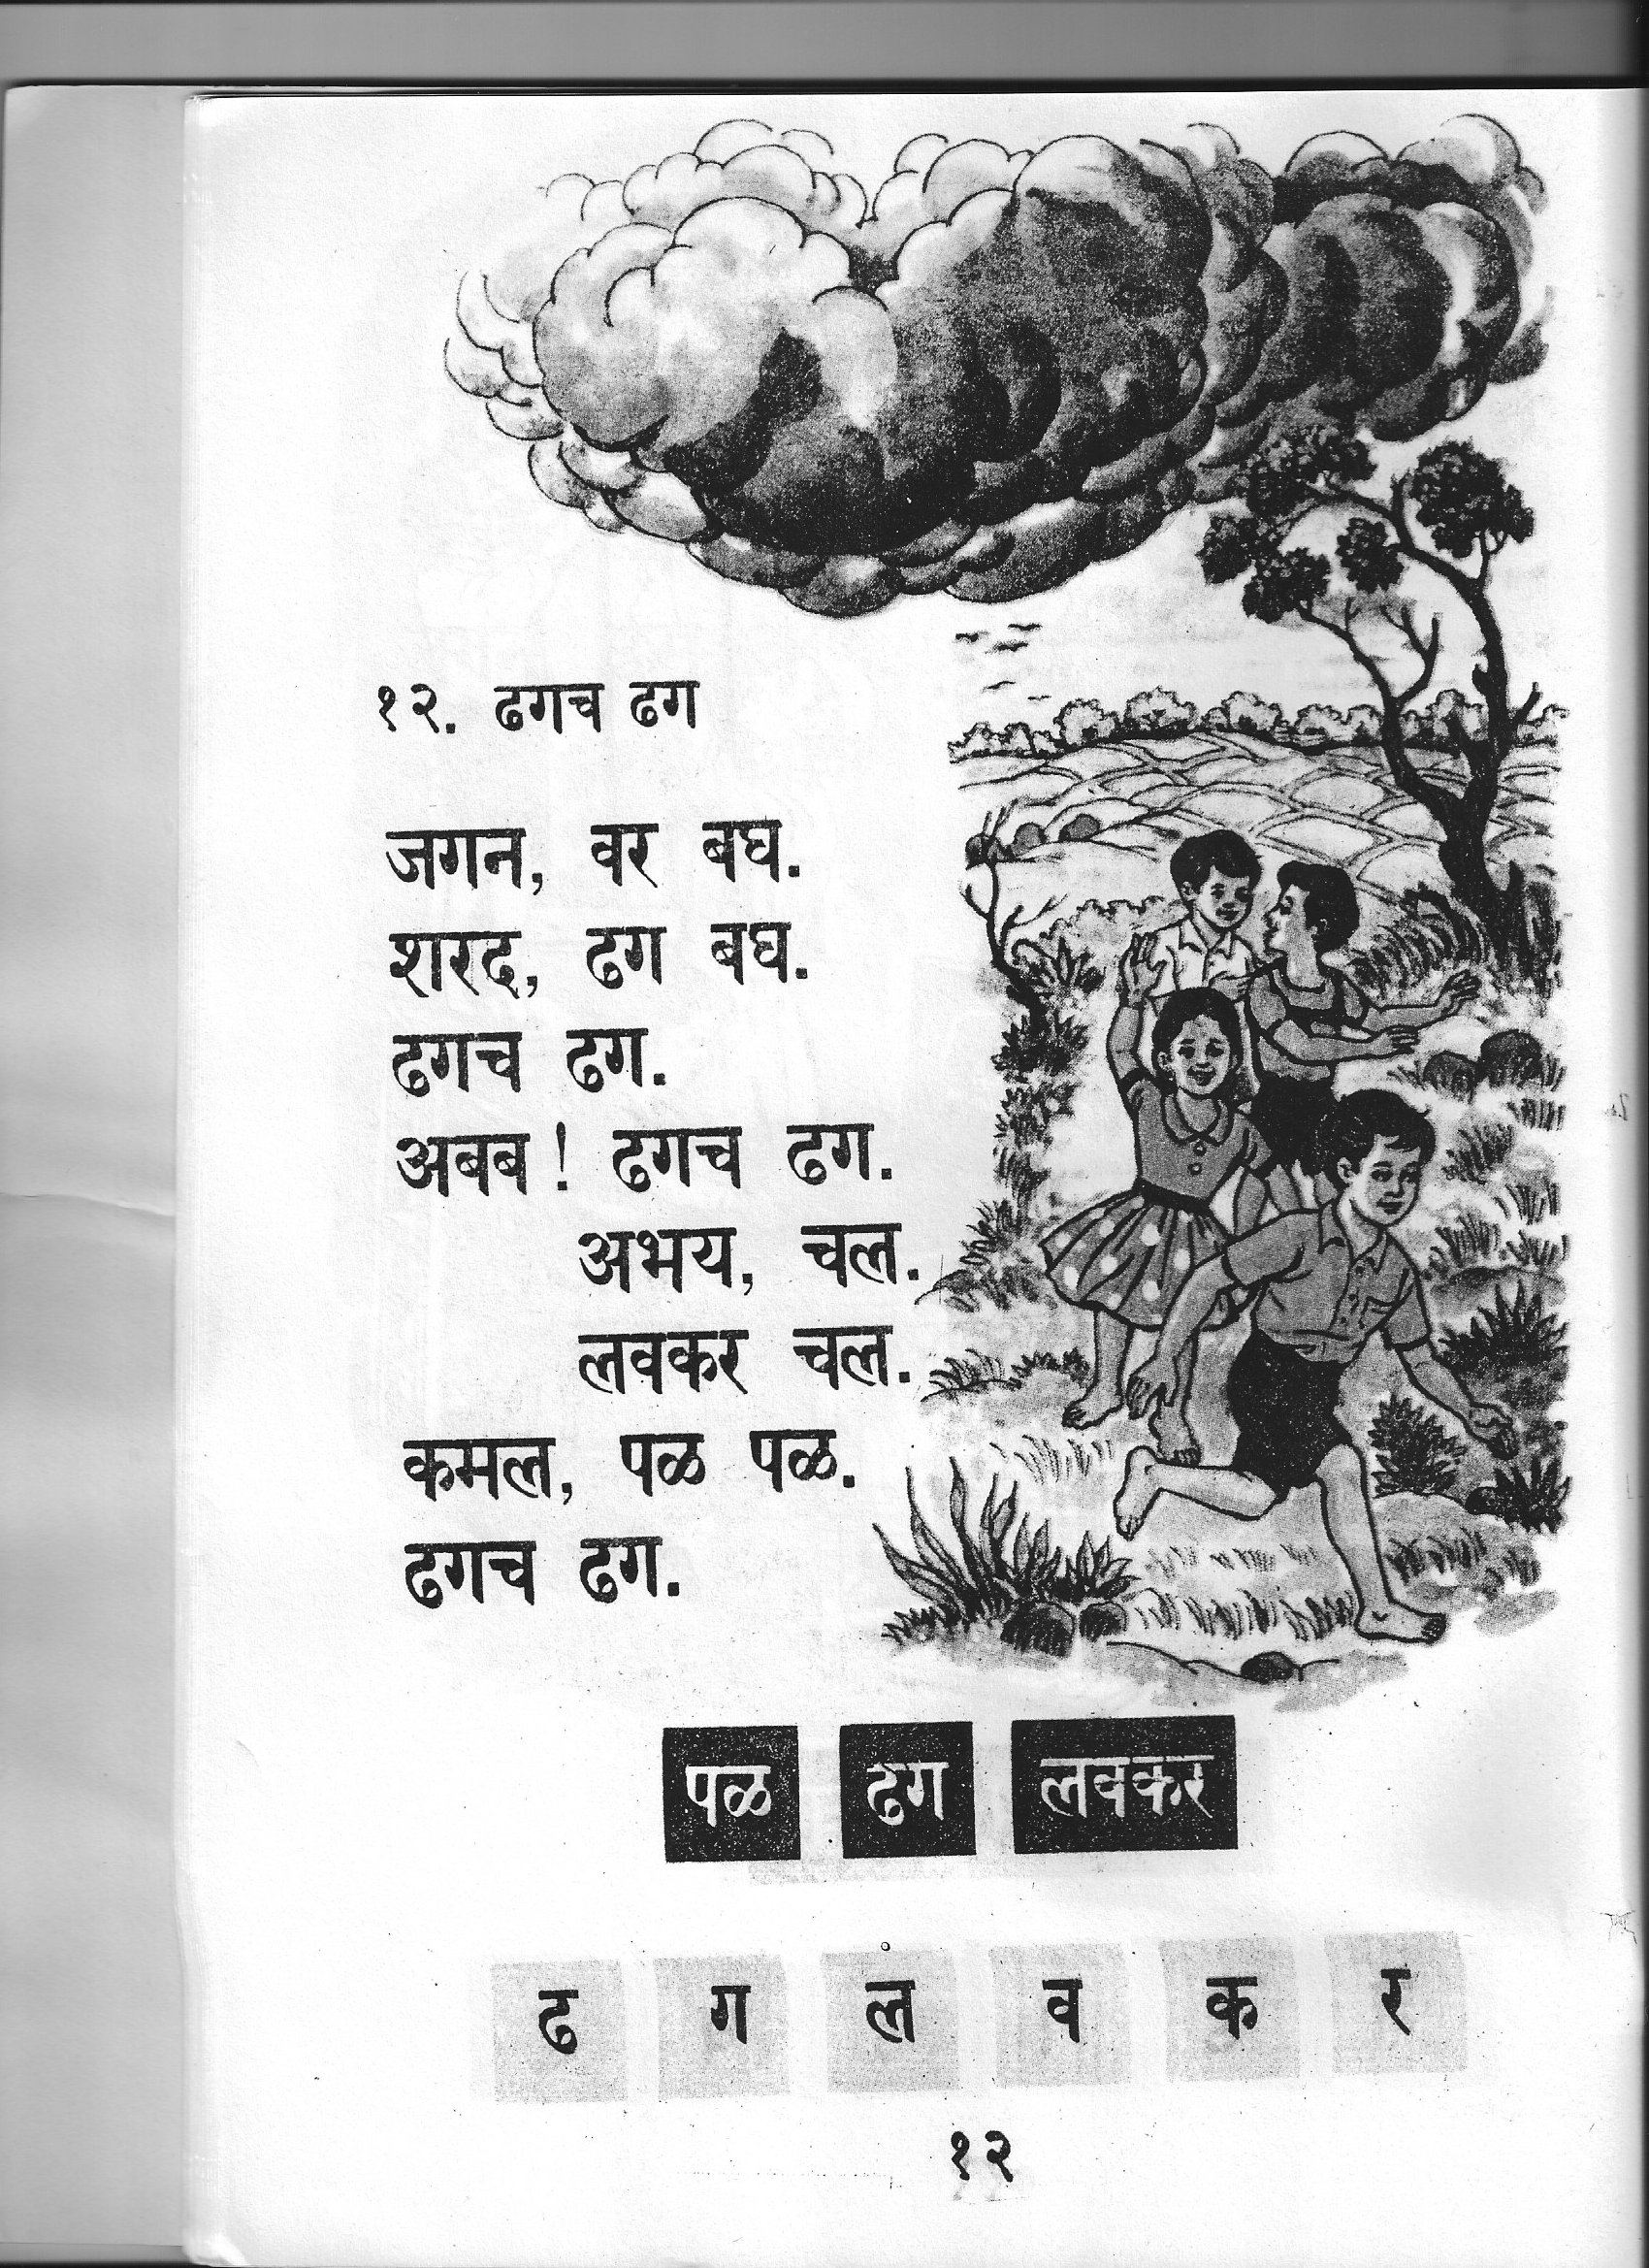 १२. ढगच ढग
जगन, वर बघ.
शरद, ढग बघ.
ढगच ढग.
अबब! ढगच ढग.
अभय, चल.
लवकर चल.
कमल, पळ पळ.
ढगच ढग.
पळ ढग लवकर
ढ ग ल व क र
१२